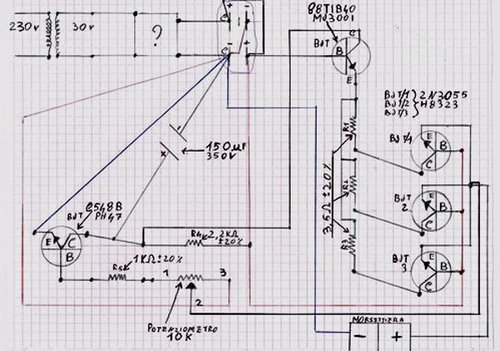 230v
30v
?
88T1B40
MJ3001
BJT
C
B
E
BJT/1
BJT/2
BJT/3
2N3055
H8323
150µF
350V
R1
R2
R3
3,5Ω±20%
E
B
C
BJT
2
E
B
C
BJT
3
E
B
C
C548B
PH47
BJT
E
C
B
R4
2,2KΩ
±20%
R5
1KΩ±20%
1
3
2
POTENZIOMETRO
10K
MORSETTIERA
- +